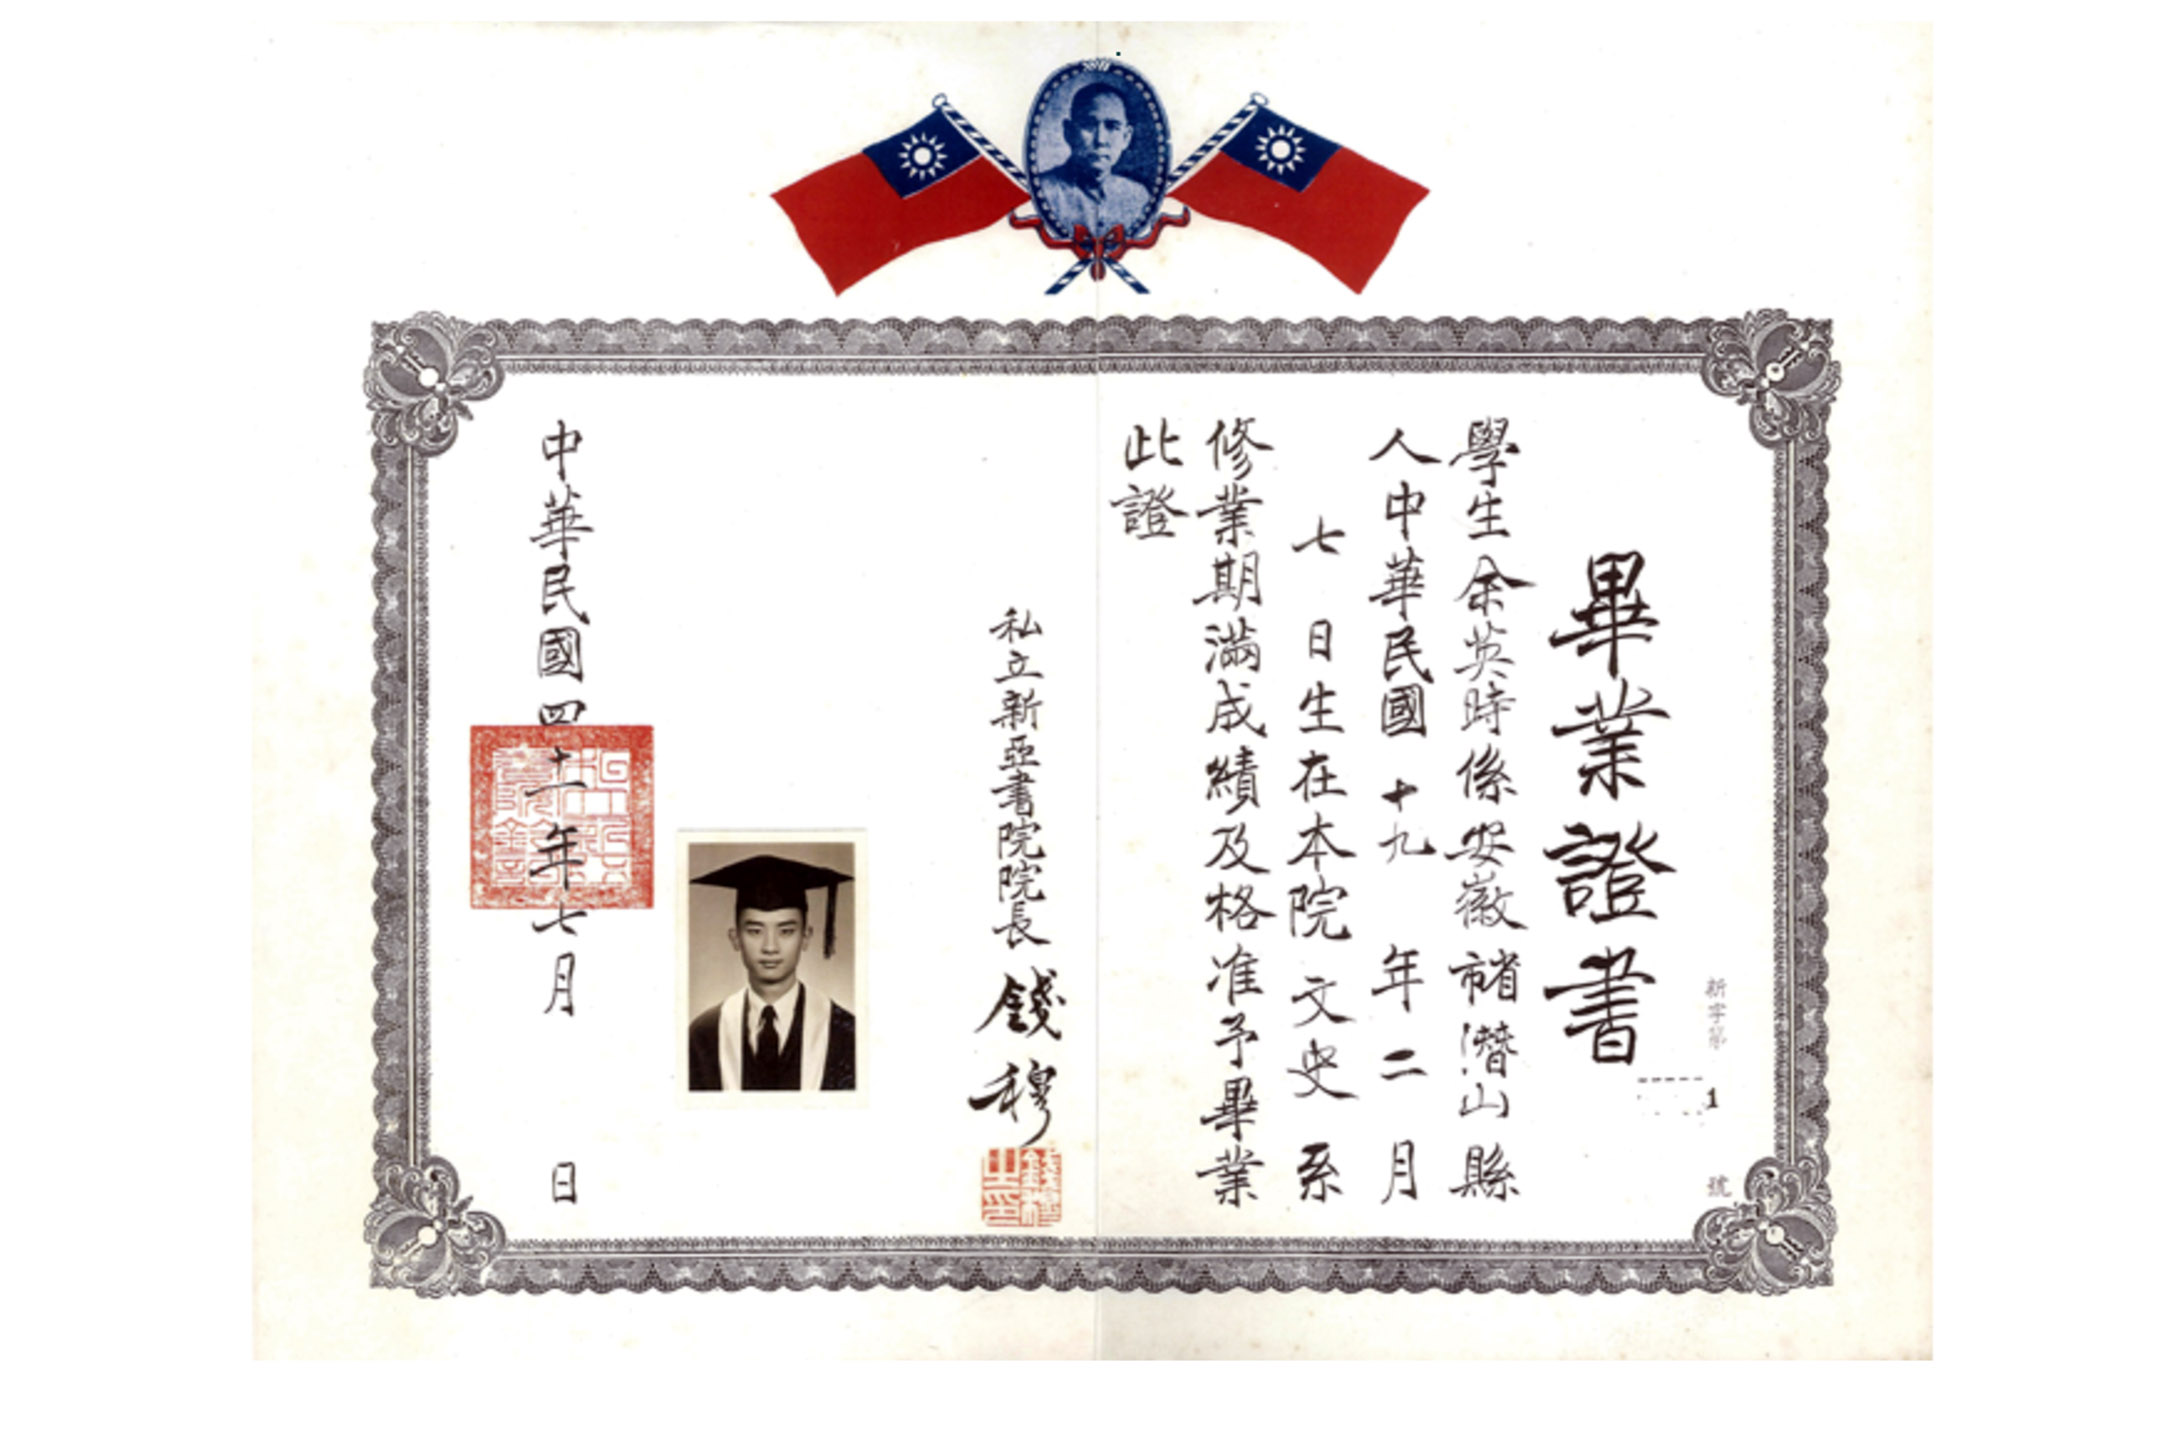 畢業證書
新字第 1 號
學生余英時係安徽省市潛山縣
人中華民國十九年二月
七日生在本院文史系
修業期滿成績及格准予畢業
此證
私立新亞書院院長錢穆
錢穆之印
中華民國四十一年七月 日